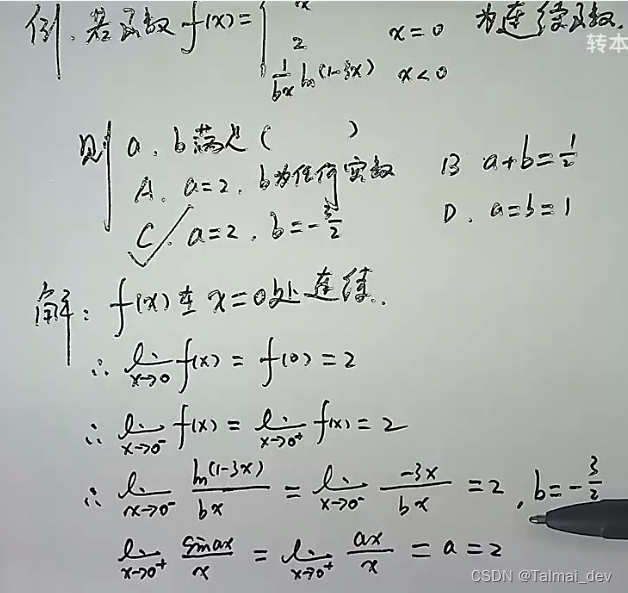 例. 若函数 f(x)={
2 x=0 为连续函数.
转本
1/(bx) ln(1-3x) x<0
则 a、b满足( )
A. a=2, b为任何实数 B a+b=1/2
C. a=2, b=-3/2 D. a=b=1
解: f(x)在 x=0处连续.
∴ lim x→0 f(x) = f(0) = 2
∴ lim x→0⁻ f(x) = lim x→0⁺ f(x) = 2
∴ lim x→0⁻ ln(1-3x)/bx = lim x→0⁻ -3x/bx = 2, b=-3/2
lim x→0⁺ sinax/x = lim x→0⁺ ax/x = a = 2
CSDN @Talmai_dev